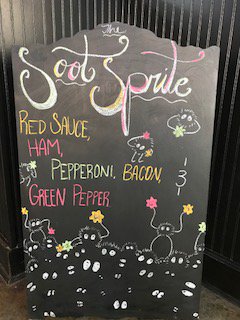 The
Soot Sprite
RED SAUCE,
HAM,
PEPPERONI, BACON,
GREEN PEPPER